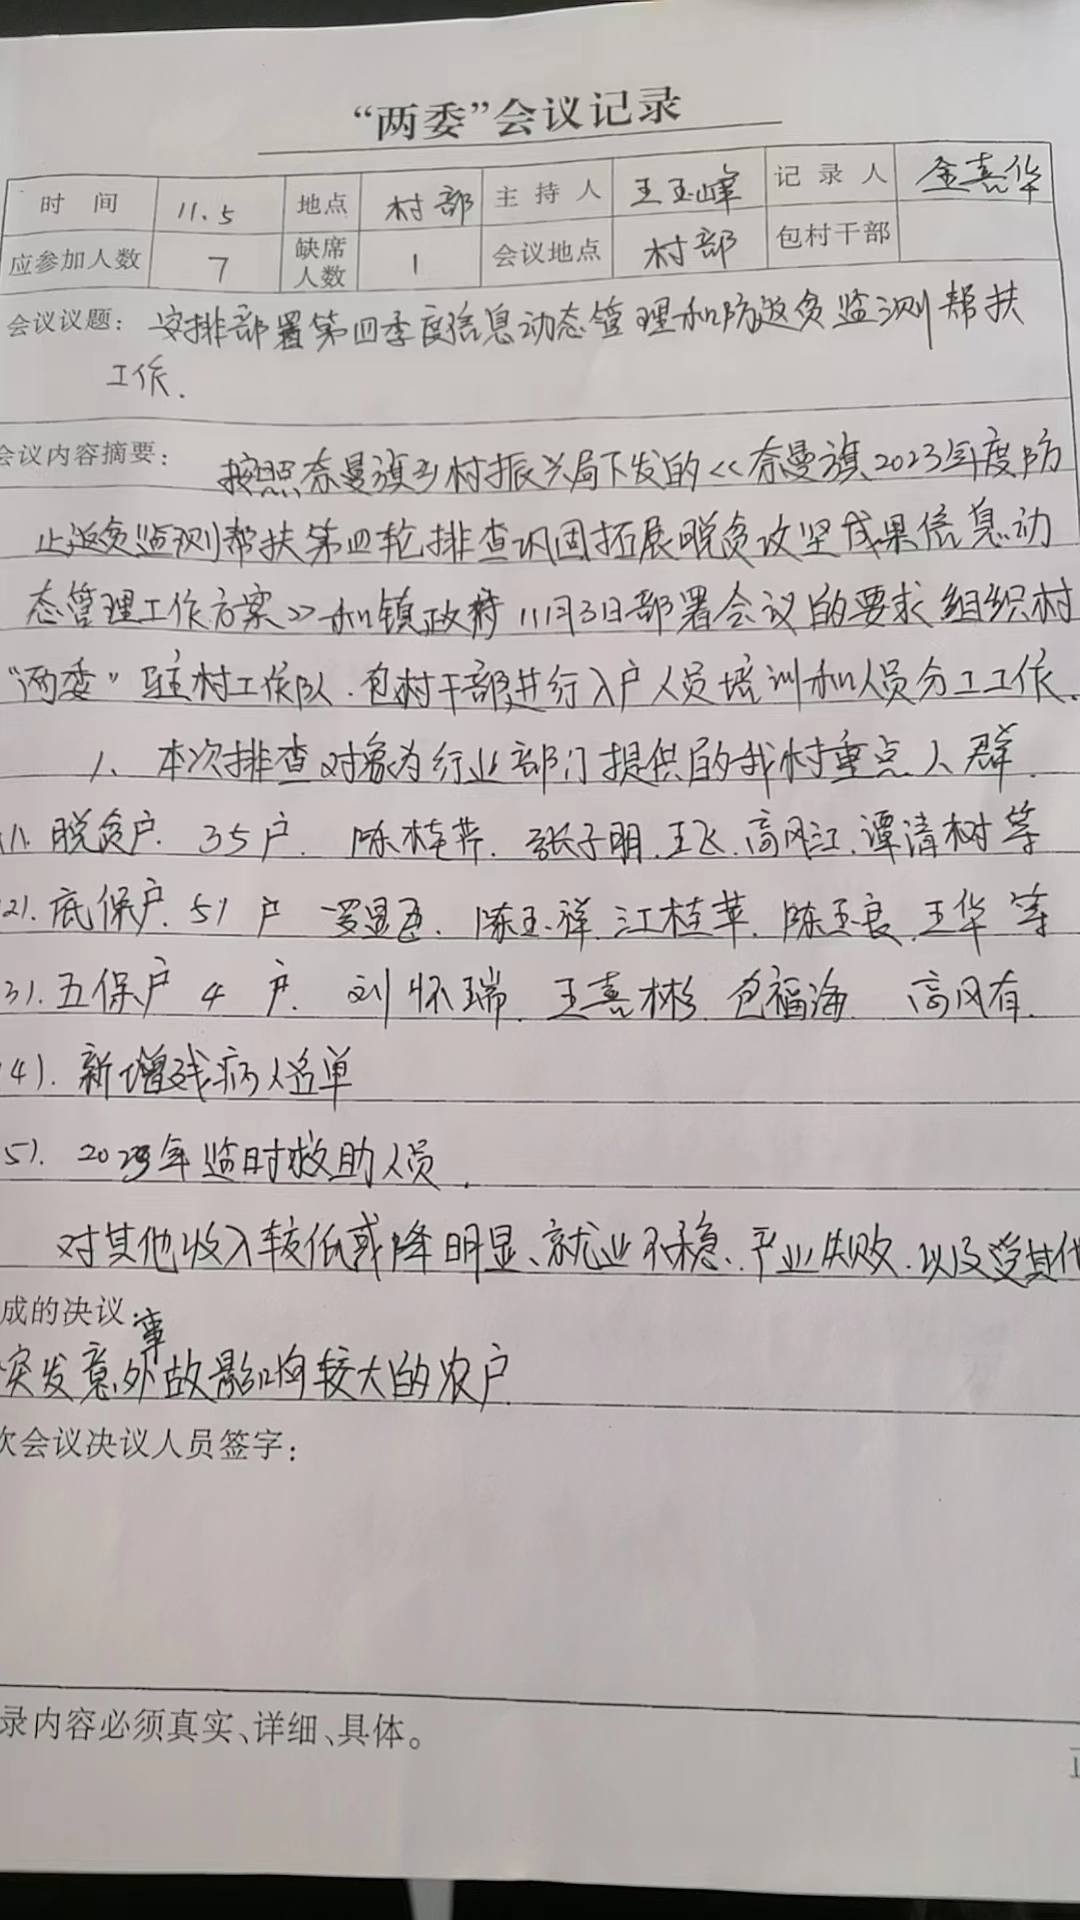 “两委”会议记录
时间 11.5 地点 村部 主持人 王玉峰 记录人 金嘉华
应参加人数 7 缺席人数 1 会议地点 村部 包村干部
会议议题：安排部署第四季度信息动态管理和防返贫监测帮扶
工作.
会议内容摘要：按照奈曼旗乡村振兴局下发的<<奈曼旗2023年度防
止返贫监测帮扶第四轮排查巩固拓展脱贫攻坚成果信息动
态管理工作方案>>和镇政府11月3日部署会议的要求组织村
“两委”驻村工作队.包村干部进行入户人员培训和人员分工工作.
1、本次排查对象为行业部门提供的我村重点人群.
(1).脱贫户.35户 陈桂芹.张子明.王飞.高风江.谭清树等
(2).底保户.51户 罗显 陈玉祥.江桂苹.陈玉良.王华等
3).五保户4户.刘怀瑞.王喜彬.包福海 高风有.
4).新增残病人名单
5).2023年临时救助人员.
对其他收入较低或降明显、就业不稳、产业失败.以及受其他
成的决议：
突发意外事故影响较大的农户.
次会议决议人员签字：
录内容必须真实、详细、具体。